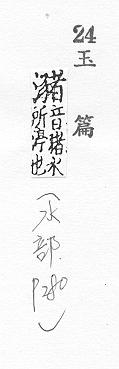 24
玉篇
瀦音猪水
所亭也
(水部.
P280)